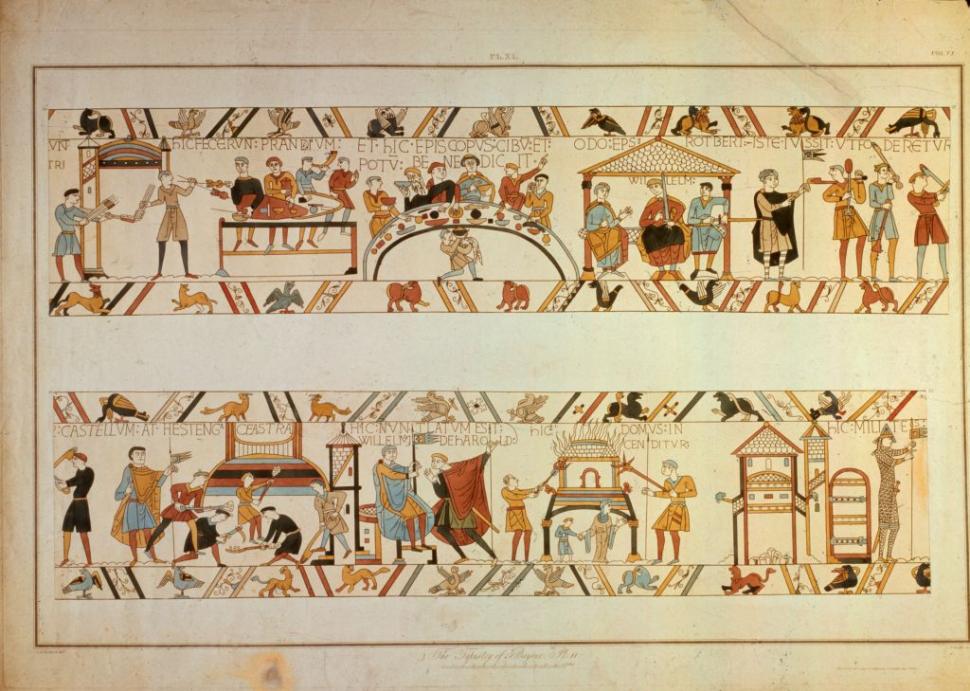 PL. XI.
VOL. VI.
VN
TRI
hIC FECERVN: PRANDIVM:
ET·hIC·EPISCOPVS:CIBV:ET:
POTV: BE NE DIC IT·
ODO:EPS: ROTBERT: ISTE·IVSSIT:VT FO DERETVR
WILLELM:
CASTELLVM: AT· HESTENGA CEASTRA
HIC: NVNTIATUM EST:
WILLELM DE HAROLD:
hIC DOMVS: IN
CEN DITVR:
HIC: MILITE
The Tapestry of Bayeux Pl. 11